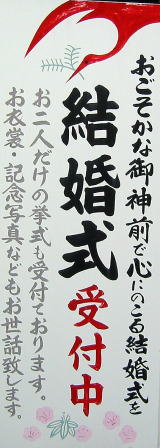 おごそかな御神前で心にのこる結婚式を
結婚式受付中
お二人だけの挙式も受付ております。
お衣裳・記念写真などもお世話致します。